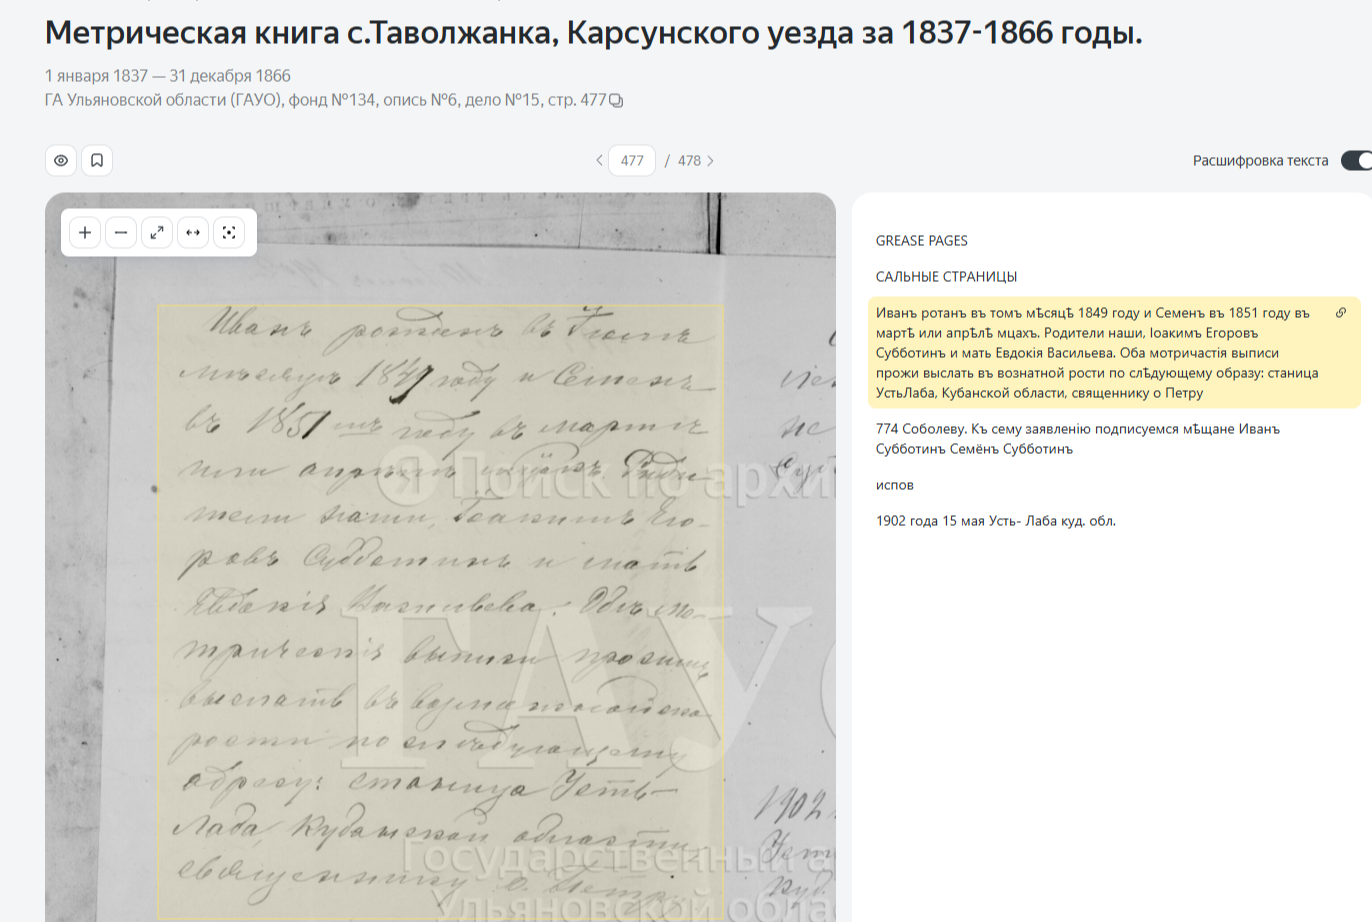 Метрическая книга с.Таволжанка, Карсунского уезда за 1837-1866 годы.
1 января 1837 — 31 декабря 1866
ГА Ульяновской области (ГАУО), фонд №134, опись №6, дело №15, стр. 477
477 / 478
Расшифровка текста
Иванъ родтанъ въ Іюнѣ
мѣсяцѣ 1849 году и Семенъ
въ 1851мъ году въ мартѣ
или апрѣлѣ мцахъ. Роди-
тели наши, Іоакимъ Его-
ровъ Субботинъ и мать
Евдокія Васильева. Обѣ ме-
трическія выписи просимъ
выслать въ
рости по слѣдующему
образу: станица Усть-
Лаба, Кубанской области,
священнику о. Петру
1902
Усть
Куб.
Поиск по архи
ГАУО
Государственный а
Ульяновской обла
GREASE PAGES
САЛЬНЫЕ СТРАНИЦЫ
Иванъ ротанъ въ томъ мѣсяцѣ 1849 году и Семенъ въ 1851 году въ
мартѣ или апрѣлѣ мцахъ. Родители наши, Іоакимъ Егоровъ
Субботинъ и мать Евдокія Васильева. Оба мотричастія выписи
прожи выслать въ вознатной рости по слѣдующему образу: станица
УстьЛаба, Кубанской области, священнику о Петру
774 Соболеву. Къ сему заявленію подписуемся мѣщане Иванъ
Субботинъ Семёнъ Субботинъ
испов
1902 года 15 мая Усть- Лаба куд. обл.